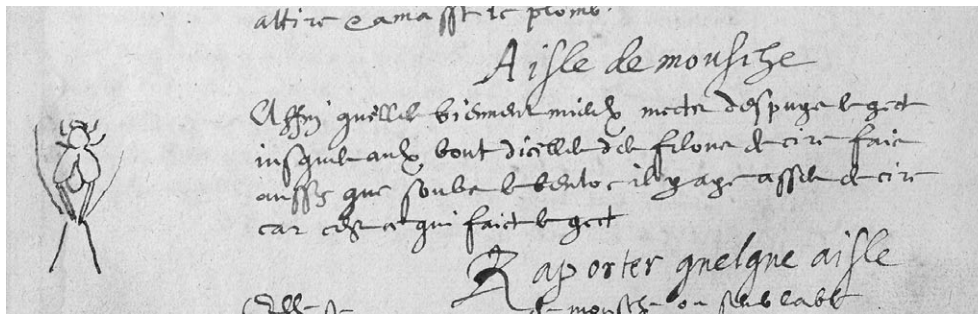 attire & amasse le plomb.
Aisle de mousche
Affin quelles viennent mieulx mects despuys le gect
jusques aulx bout dicelles des filons de cire fais
aussy que soubs le ventre il y aye asses de cire
car cest ce qui faict le gect
Raporter quelque aisle
de mousche ou semblable